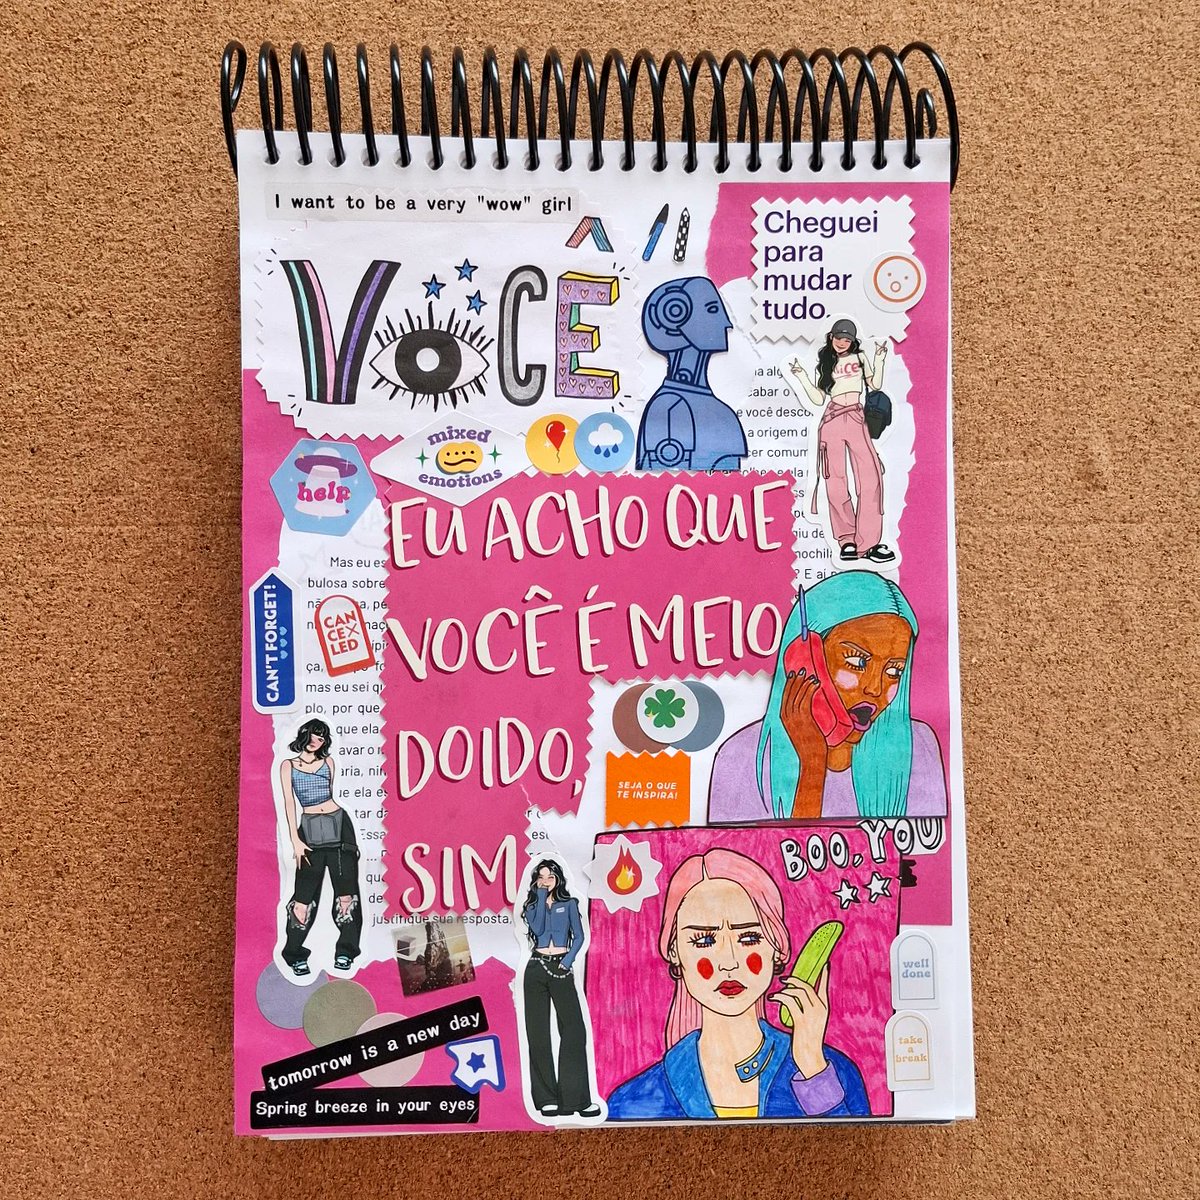 I want to be a very "wow" girl
VOCÊ
Cheguei
para
mudar
tudo.
mixed
emotions
help
EU ACHO QUE
VOCÊ É MEIO
DOIDO,
SIM
CAN'T FORGET!
CAN
CE
LED
Mas eu es
bulosa sobre
mas eu sei qu
plo, por que
que ela
justifique sua resposta,
cabar o
e você desco
a origem d
cer comum
mochila
? E ai
SEJA O QUE
TE INSPIRA!
BOO, YOU
well
done
take
a
break
tomorrow is a new day
Spring breeze in your eyes